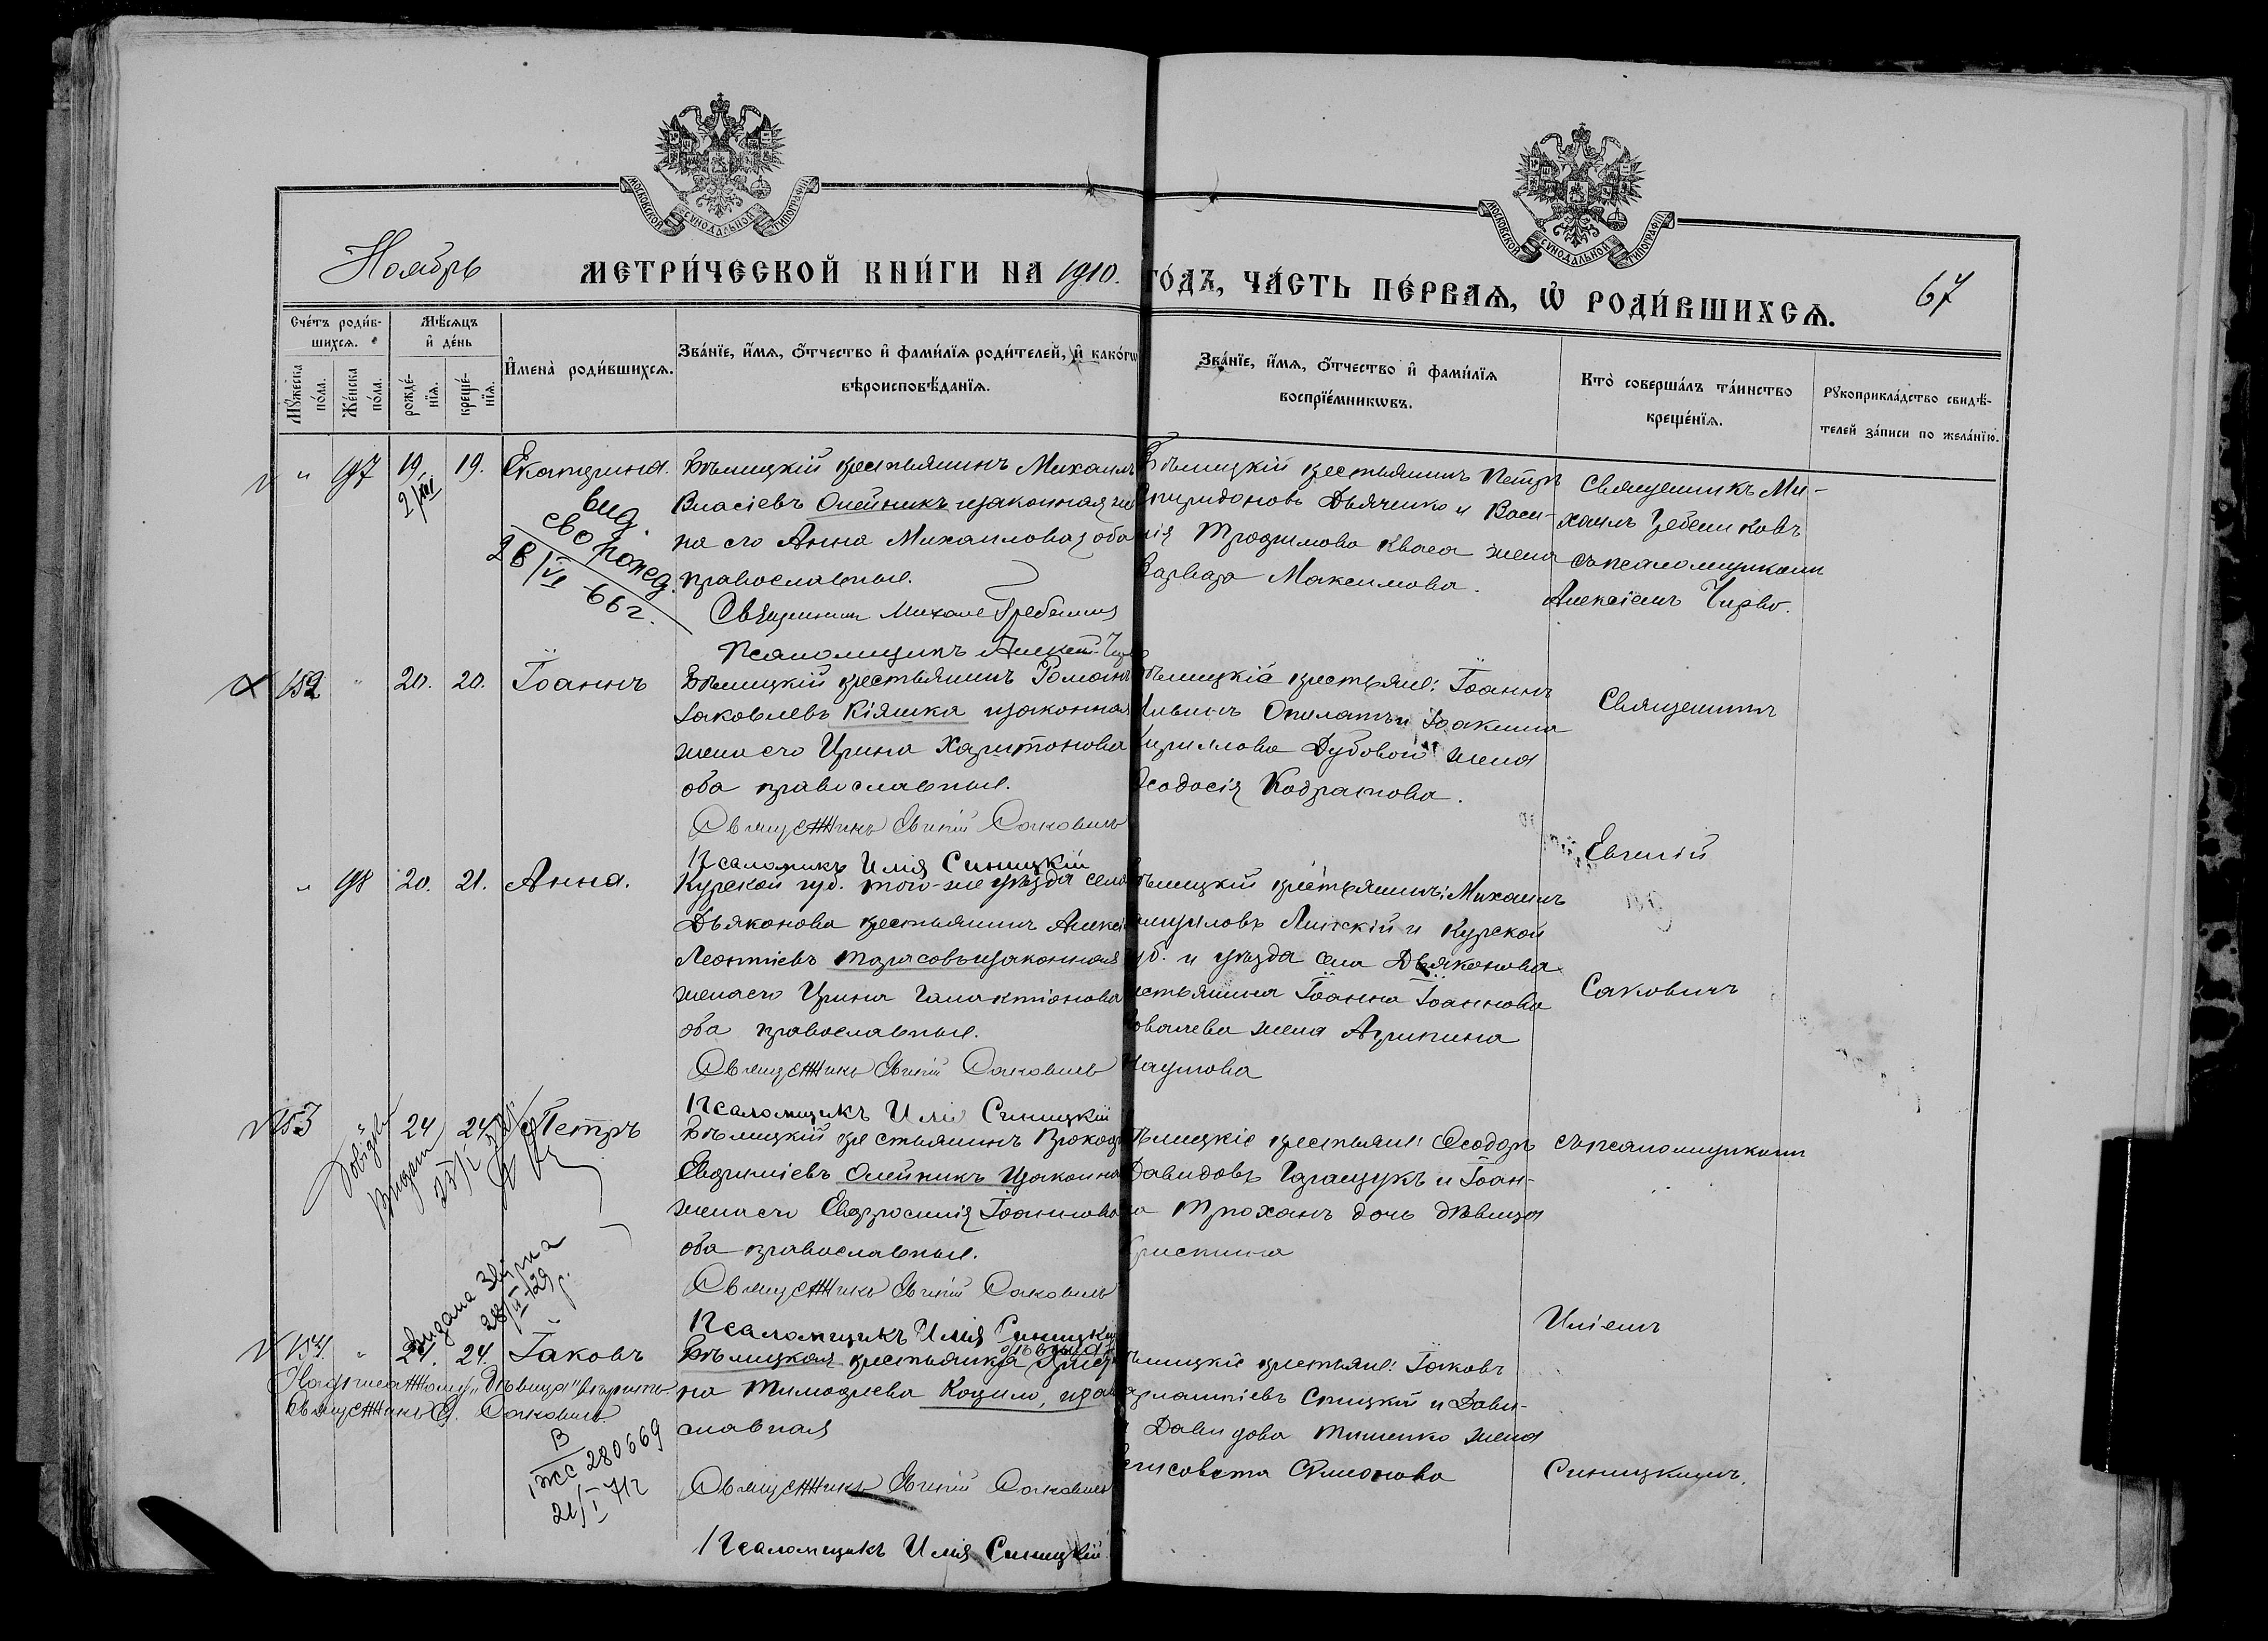 МОСКОВСКОЙ СѴНОДАЛЬНОЙ ТИПОГРАФІИ
МОСКОВСКОЙ СѴНОДАЛЬНОЙ ТИПОГРАФІИ
Ноябрь
МЕТРИ́ЧЕСКОЙ КНИ́ГИ НА 1910. ГО́ДЪ, ЧА́СТЬ ПЕ́РВАѦ, Ѡ҆ РОДИ́ВШИХСѦ.
67
Сче́тъ роди́в-
шихсѧ.
Мѣ́сѧцъ
и҆ де́нь
Мꙋ́жеска по́ла.
Же́нска по́ла.
рожде́-
нїѧ.
креще́-
нїѧ.
И҆мена̀ роди́вшихсѧ.
Зва́нїе, и҆́мѧ, ѻ҆́тчество и҆ фами́лїѧ роди́телей, и҆ како́гѡ
вѣроисповѣ́данїѧ.
Зва́нїе, и҆́мѧ, ѻ҆́тчество и҆ фами́лїѧ
воспрїе́мникѡвъ.
Кто̀ соверша́лъ та́инство
креще́нїѧ.
Рꙋкоприкла́дство свидѣ́-
телей за́писи по жела́нїю.
" 97 19. 19. Екатерина.
2/VII
вид.
св о рожд.
28/VI 66 г.
Бѣлицкій крестьянинъ Михаилъ
Власіевъ Олейникъ и законная же
на его Анна Михаилова, оба
православные.
Священникъ Михаилъ Гребениковъ
Псаломщикъ Алексѣй Чирво
Бѣлицкій крестьянинъ Петръ
Спиридоновъ Дьяченко и Васи-
лія Трофимова Кваса жена
Варвара Максимова.
Священникъ Ми-
хаилъ Гребениковъ
съ псаломщикомъ
Алексіемъ Чирво.
152 " 20. 20. Іоаннъ
Бѣлицкій крестьянинъ Романъ
Іаковлевъ Кіяшка и законная
жена его Ирина Харитонова
оба православные.
Священникъ Евгеній Саковичъ
Псаломщикъ Илія Синицкій
Бѣлицкіе крестьяне: Іоаннъ
Ильинъ Опилатъ и Іоакима
Кириллова Дубовой жена
Ѳеодосія Кодратова.
Священникъ
Евгеній
" 98 20. 21. Анна.
Курской губ. того-же уѣзда села
Дьяконова крестьянинъ Алексій
Леонтіевъ Тарасовъ и законная
жена его Ирина Галактіонова
оба православные.
Священникъ Евгеній Саковичъ
Псаломщикъ Илія Синицкій
Бѣлицкій крестьянинъ: Михаилъ
Линскій и Курской
губ. и уѣзда села Дьяконова
крестьянина Іоанна Іоаннова
Ковалева жена Агрипина
Наумова
Саковичъ
153 24 24 Петръ
Довідку
видат
Бѣлицкій крестьянинъ Прокофій
Евфиміевъ Олейникъ и законная
жена его Евфросинія Іоаннова
оба православные.
Священникъ Евгеній Саковичъ
Псаломщикъ Илія Синицкій
Бѣлицкіе крестьяне: Ѳеодоръ
Давидовъ Геращукъ и Іоан-
на Троханъ дочь дѣвица
Христина
съ псаломщикомъ
Иліемъ
видана Звірна
28/II 29 р.
154. " 24. 24. Іаковъ
Надписанному "дѣвица" вѣрить
священникъ Е. Саковичъ.
В
1 ЖС 280669
21/I 71 г
дѣвица
Бѣлицкая крестьянка Христи
на Тимофіева Коцило, право
славная
Священникъ Евгеній Саковичъ
Псаломщикъ Илія Синицкій
Бѣлицкіе крестьяне: Іаковъ
Харлампіевъ Спицкій и Дави-
да Давидова Тищенко жена
Елисавета Симонова
Синицкимъ.